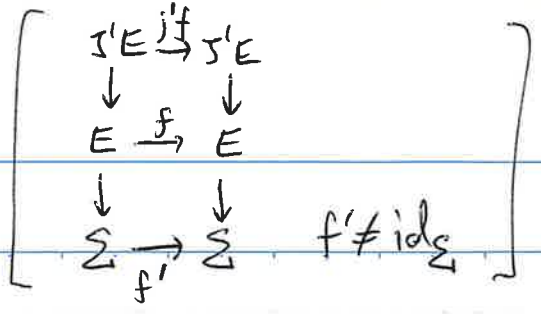 J'E j'f→ J'E
↓ ↓
E f→ E
↓ ↓
Σ f'→ Σ f' ≠ id_Σ